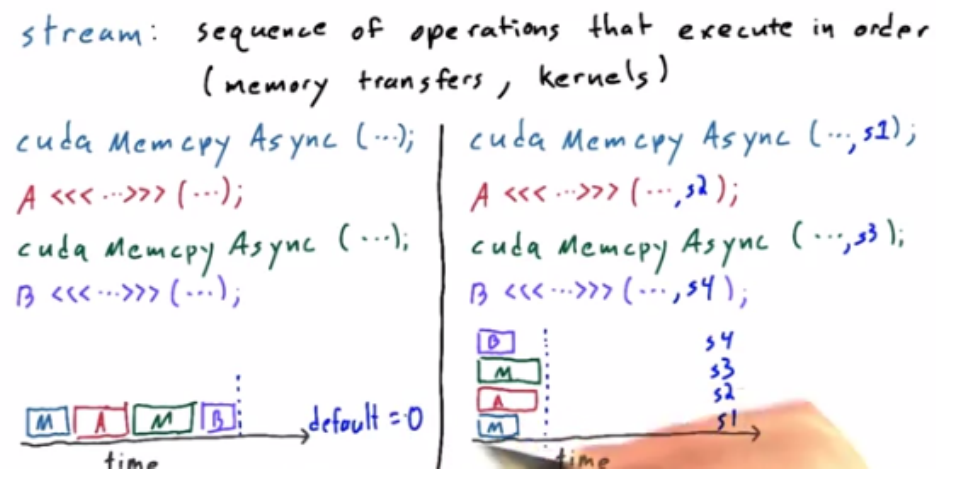 stream: sequence of operations that execute in order
(memory transfers, kernels)
cuda Memcpy Async (...);
A <<< ... >>> (...);
cuda Memcpy Async (...);
B <<< ... >>> (...);
M A M B
default = 0
time
cuda Memcpy Async (..., s1);
A <<< ... >>> (..., s2);
cuda Memcpy Async (..., s3);
B <<< ... >>> (..., s4);
B s4
M s3
A s2
M s1
time